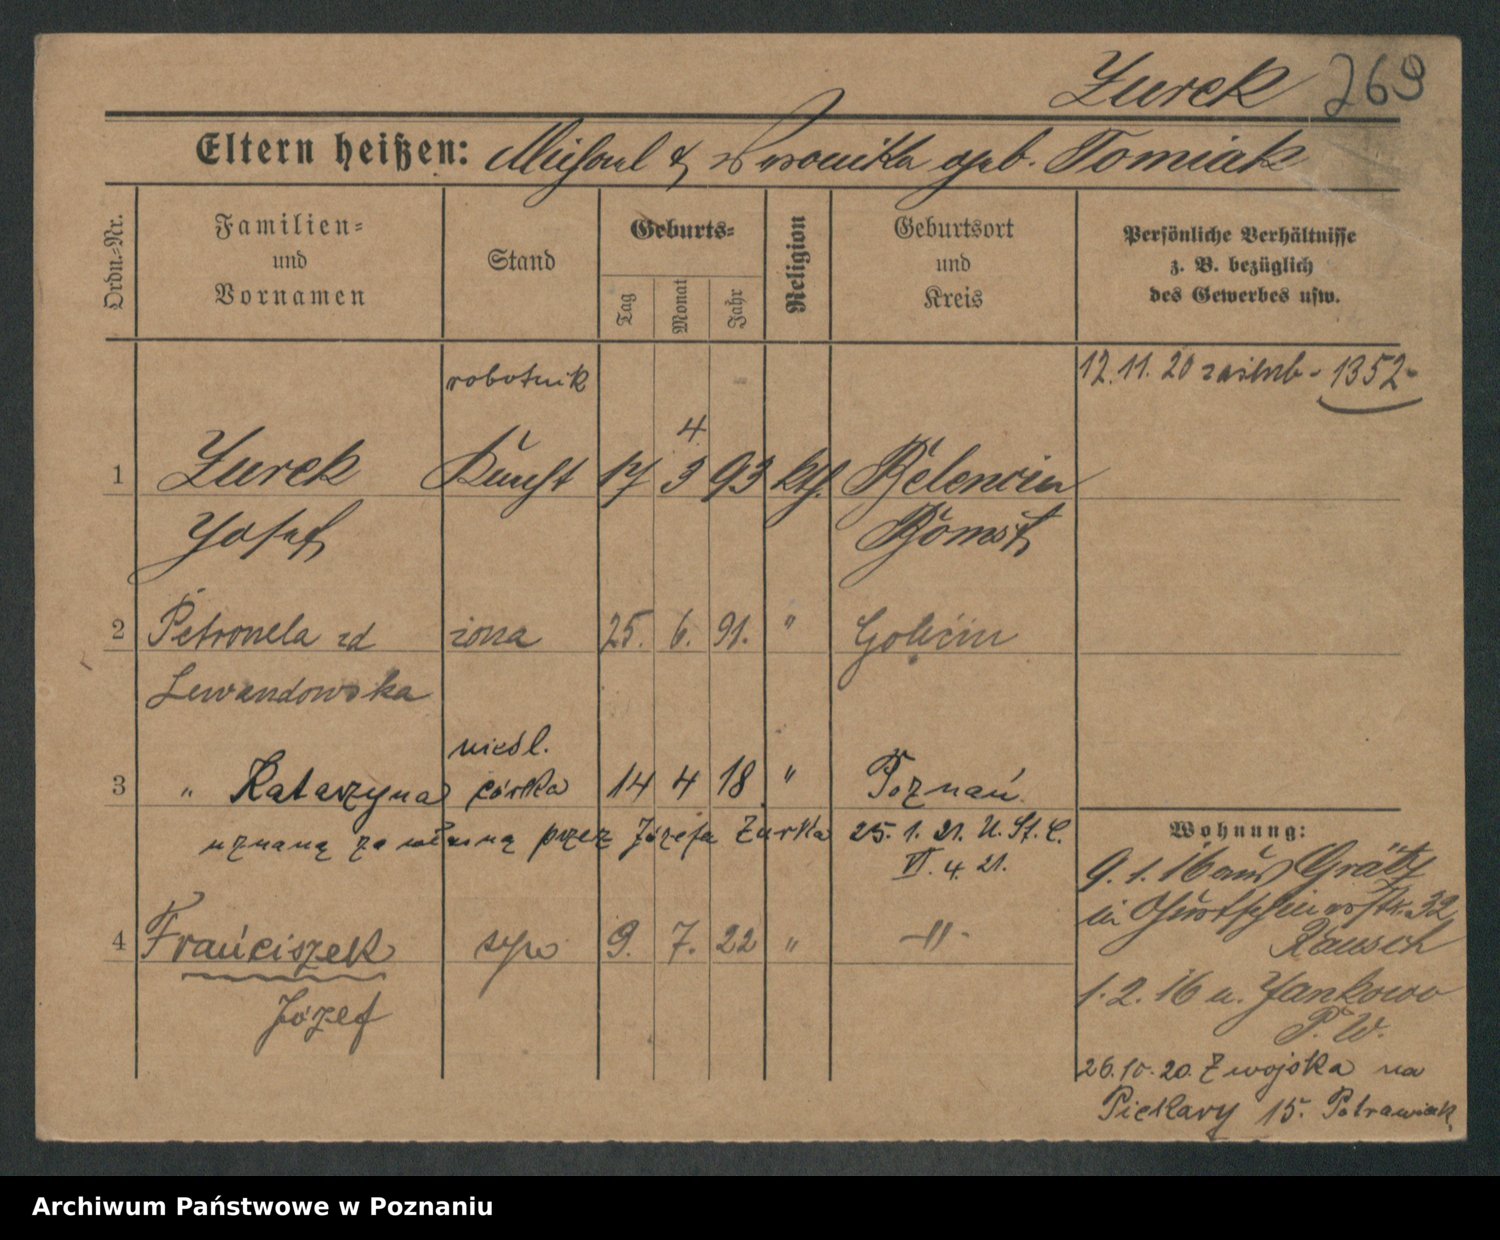 Zurek 269
Eltern heißen: Michael & Veronika geb. Tomiak
Ordn.-Nr.
Familien-
und
Vornamen
Stand
Geburts-
Tag
Monat
Jahr
Religion
Geburtsort
und
Kreis
Persönliche Verhältnisse
z. B. bezüglich
des Gewerbes usw.
robotnik
12.11.20 - 1352-
4
1 Zurek Knecht 17 3 93 kth.
Josef Bomst
2 Petronela zd żona 25. 6. 91. " Golęcin
Lewandowska
nieśl.
3 " Katarzyna córka 14 4 18 " Poznań
uznaną za własną przez Józefa Żurka 25.1.21. U.St.C.
VI. 4. 21.
4 Franciszek syn 9. 7. 22 " -"-
Józef
Wohnung:
9.1.16 aus Grätz
in 32
Rausch
1.2.16 n. Jankowo
P.W.
26.10.20. Z wojska na
Piekary 15. Potrawiak
Archiwum Państwowe w Poznaniu